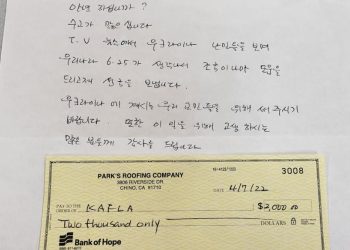 안녕 하십니까?
수고가 많으십니다
T.V 뉴스에서 우크라이나 난민들을 보며
우리나라 6.25가 생각나서 조금이나마 도움을
드리고저 성금을 보냅니다.
우크라이나에 계시는 우리 교민들을 위해 써 주시기
바랍니다. 또한 이 일을 위해 고생 하시는
많은 분들께 감사를 드립니다
PARK'S ROOFING COMPANY
3809 RIVERSIDE DR.
CHINO, CA 91710
3008
DATE 4/7/22
PAY TO THE ORDER OF KAFLA $2,000.00
Two thousand only DOLLARS
Bank of Hope